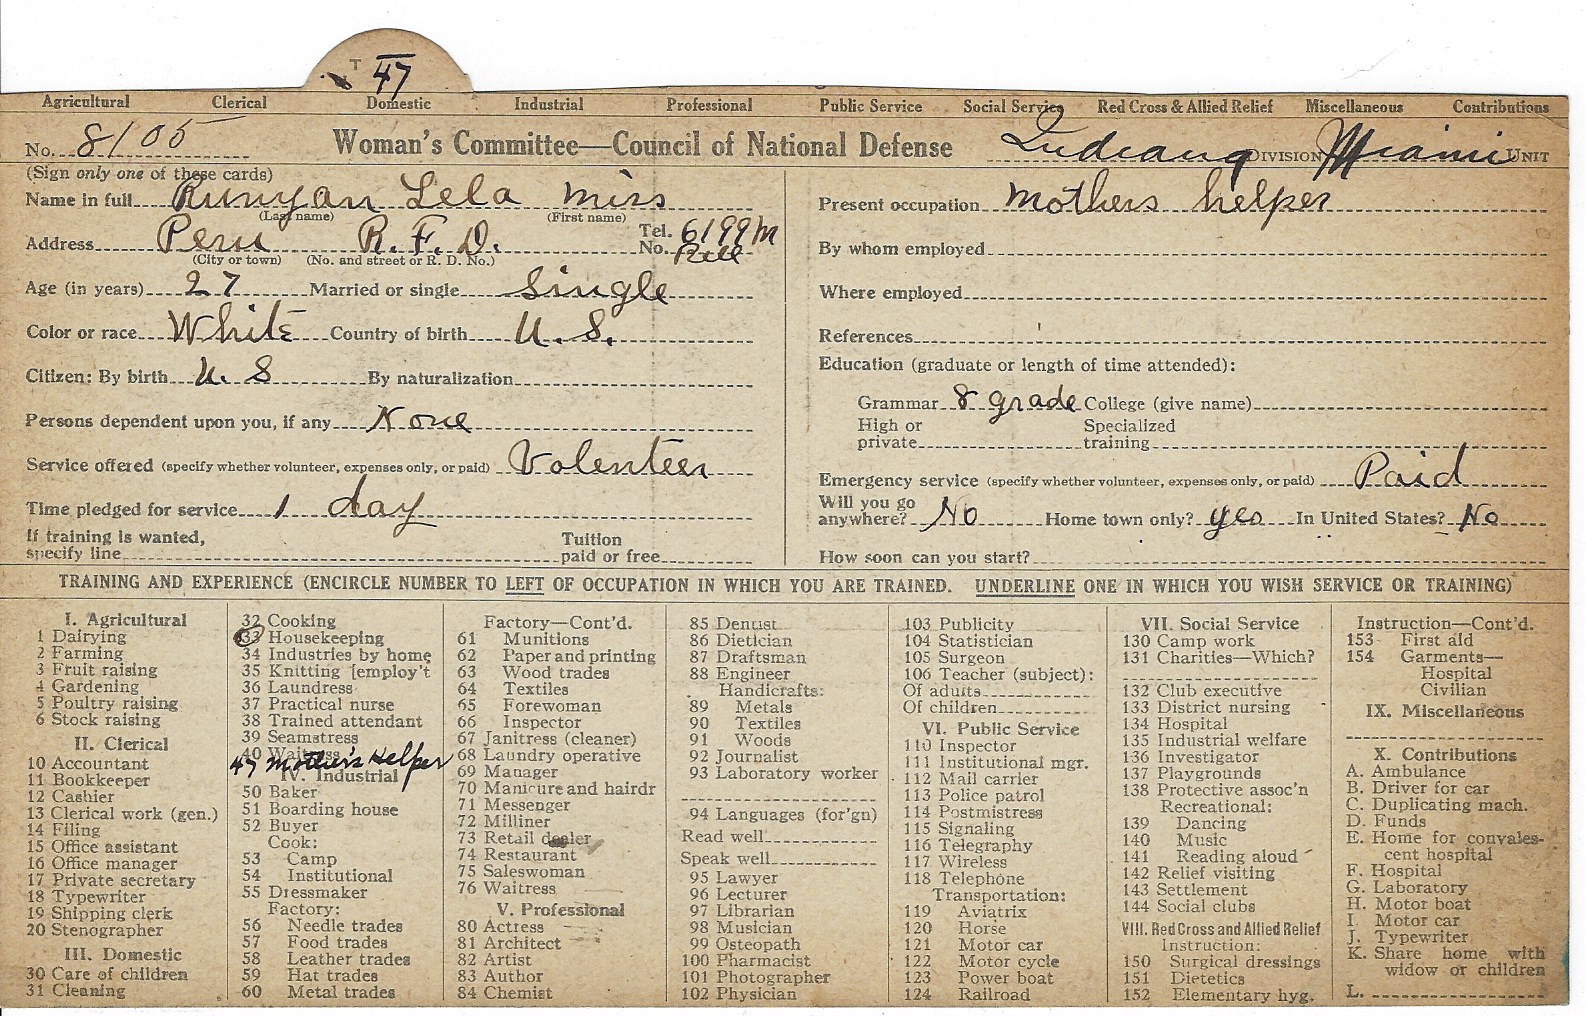 T 47
Agricultural Clerical Domestic Industrial Professional Public Service Social Service Red Cross & Allied Relief Miscellaneous Contributions
No. 8105 Woman's Committee—Council of National Defense Indiana DIVISION Miami UNIT
(Sign only one of these cards)
Name in full Runyan Lela Miss
(Last name) (First name)
Address Peru R.F.D. Tel. No. 6199M
(City or town) (No. and street or R. D. No.)
Age (in years) 27 Married or single Single
Color or race White Country of birth U.S.
Citizen: By birth U.S By naturalization
Persons dependent upon you, if any None
Service offered (specify whether volunteer, expenses only, or paid) Volenteer
Time pledged for service 1 day
If training is wanted, specify line Tuition paid or free
Present occupation Mothers helper
By whom employed
Where employed
References
Education (graduate or length of time attended):
Grammar 8 grade College (give name)
High or private Specialized training
Emergency service (specify whether volunteer, expenses only, or paid) Paid
Will you go anywhere? No Home town only? yes In United States? No
How soon can you start?
TRAINING AND EXPERIENCE (ENCIRCLE NUMBER TO LEFT OF OCCUPATION IN WHICH YOU ARE TRAINED. UNDERLINE ONE IN WHICH YOU WISH SERVICE OR TRAINING)
I. Agricultural
1 Dairying
2 Farming
3 Fruit raising
4 Gardening
5 Poultry raising
6 Stock raising
II. Clerical
10 Accountant
11 Bookkeeper
12 Cashier
13 Clerical work (gen.)
14 Filing
15 Office assistant
16 Office manager
17 Private secretary
18 Typewriter
19 Shipping clerk
20 Stenographer
III. Domestic
30 Care of children
31 Cleaning
32 Cooking
33 Housekeeping
34 Industries by home
35 Knitting [employ't
36 Laundress
37 Practical nurse
38 Trained attendant
39 Seamstress
40 Waitress
47 Mother's Helper
IV. Industrial
50 Baker
51 Boarding house
52 Buyer
Cook:
53 Camp
54 Institutional
55 Dressmaker
Factory:
56 Needle trades
57 Food trades
58 Leather trades
59 Hat trades
60 Metal trades
Factory—Cont'd.
61 Munitions
62 Paper and printing
63 Wood trades
64 Textiles
65 Forewoman
66 Inspector
67 Janitress (cleaner)
68 Laundry operative
69 Manager
70 Manicure and hairdr
71 Messenger
72 Milliner
73 Retail dealer
74 Restaurant
75 Saleswoman
76 Waitress
V. Professional
80 Actress
81 Architect
82 Artist
83 Author
84 Chemist
85 Dentist
86 Dietician
87 Draftsman
88 Engineer
Handicrafts:
89 Metals
90 Textiles
91 Woods
92 Journalist
93 Laboratory worker
94 Languages (for'gn)
Read well
Speak well
95 Lawyer
96 Lecturer
97 Librarian
98 Musician
99 Osteopath
100 Pharmacist
101 Photographer
102 Physician
103 Publicity
104 Statistician
105 Surgeon
106 Teacher (subject):
Of adults
Of children
VI. Public Service
110 Inspector
111 Institutional mgr.
112 Mail carrier
113 Police patrol
114 Postmistress
115 Signaling
116 Telegraphy
117 Wireless
118 Telephone
Transportation:
119 Aviatrix
120 Horse
121 Motor car
122 Motor cycle
123 Power boat
124 Railroad
VII. Social Service
130 Camp work
131 Charities—Which?
132 Club executive
133 District nursing
134 Hospital
135 Industrial welfare
136 Investigator
137 Playgrounds
138 Protective assoc'n
Recreational:
139 Dancing
140 Music
141 Reading aloud
142 Relief visiting
143 Settlement
144 Social clubs
VIII. Red Cross and Allied Relief
Instruction:
150 Surgical dressings
151 Dietetics
152 Elementary hyg.
Instruction—Cont'd.
153 First aid
154 Garments—
Hospital
Civilian
IX. Miscellaneous
X. Contributions
A. Ambulance
B. Driver for car
C. Duplicating mach.
D. Funds
E. Home for convales-
cent hospital
F. Hospital
G. Laboratory
H. Motor boat
I. Motor car
J. Typewriter
K. Share home with
widow or children
L.